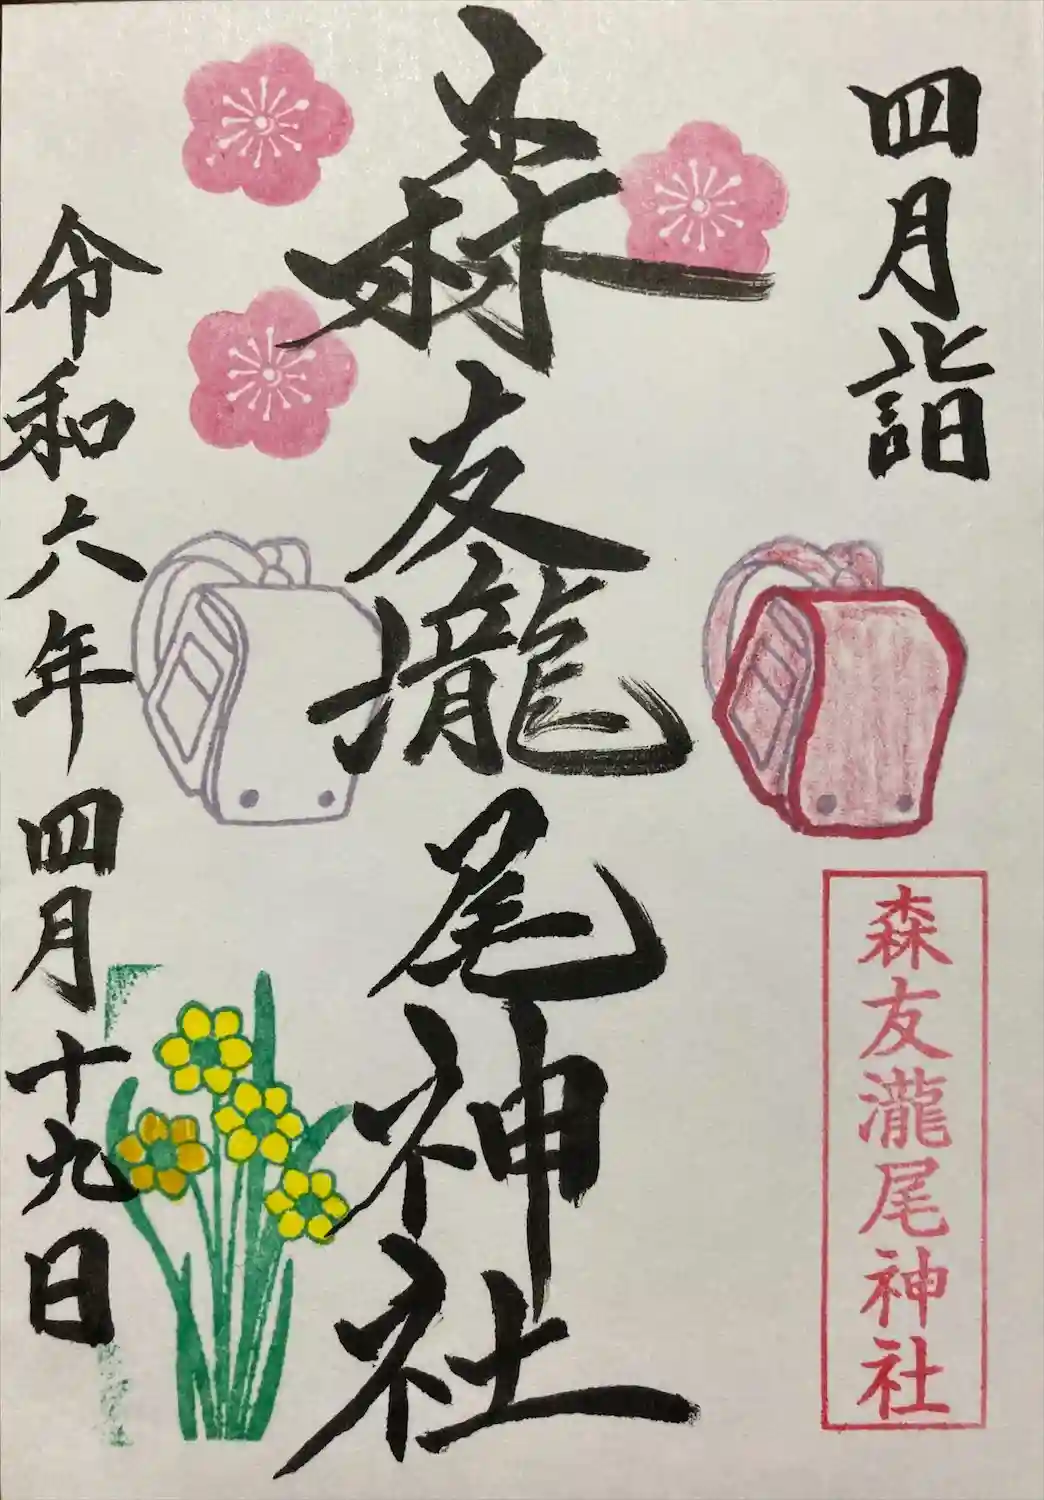 四月詣
森友瀧尾神社
森友瀧尾神社
令和六年四月十九日